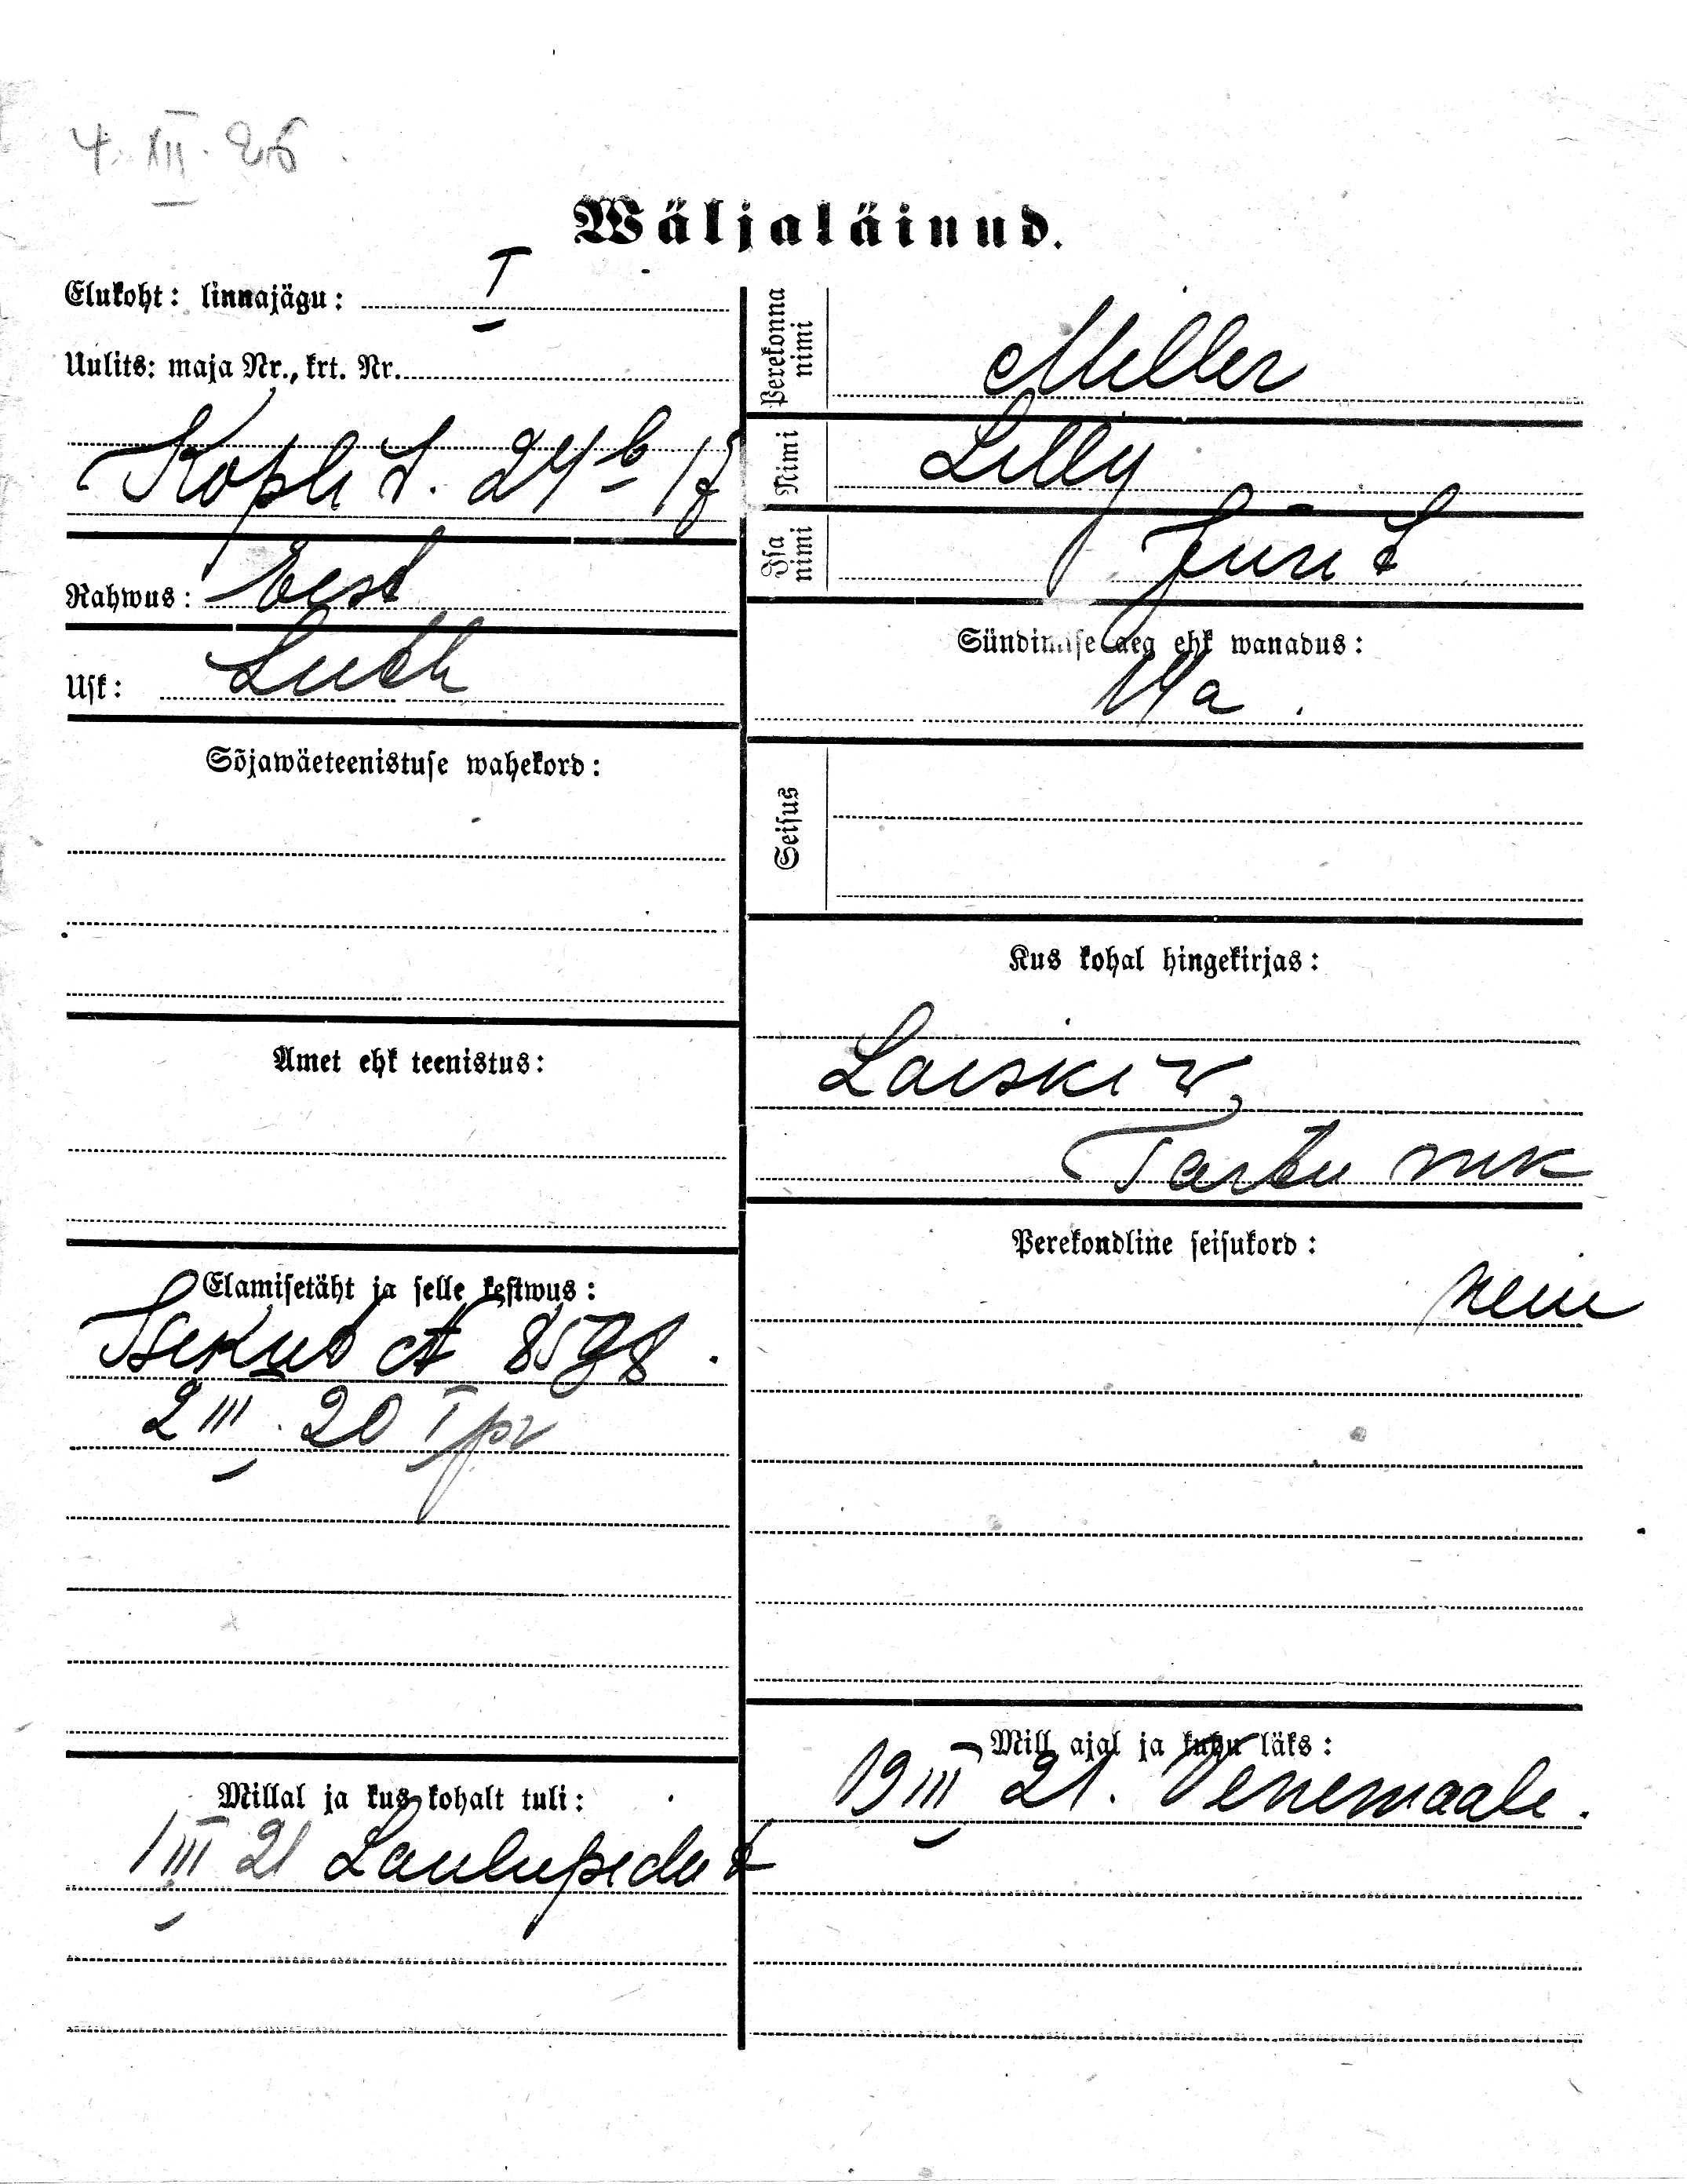 4. XII. 26.
Wäljaläinud.
Elukoht: linnajägu: I
Uulits: maja Nr., krt. Nr.
Kopli t. 24b 17
Rahwus: Eest
Usk: Luth
Sõjawäeteenistuse wahekord:
Amet ehk teenistus:
Elamisetäht ja selle kestwus:
Isikut A 8598.
2 III. 20 I pr
Millal ja kus kohalt tuli:
1 III 21 Laulupeo t
Perekonna nimi Miller
Nimi Lilly
Isa nimi Jüri t
Sündimise aeg ehk wanadus:
14 a.
Seisus
Kus kohal hingekirjas:
Laiski w,
Tartu mk
Perekondline seisukord:
neiu
Mill ajal ja kuhu läks:
19 III 21. Venemaale.